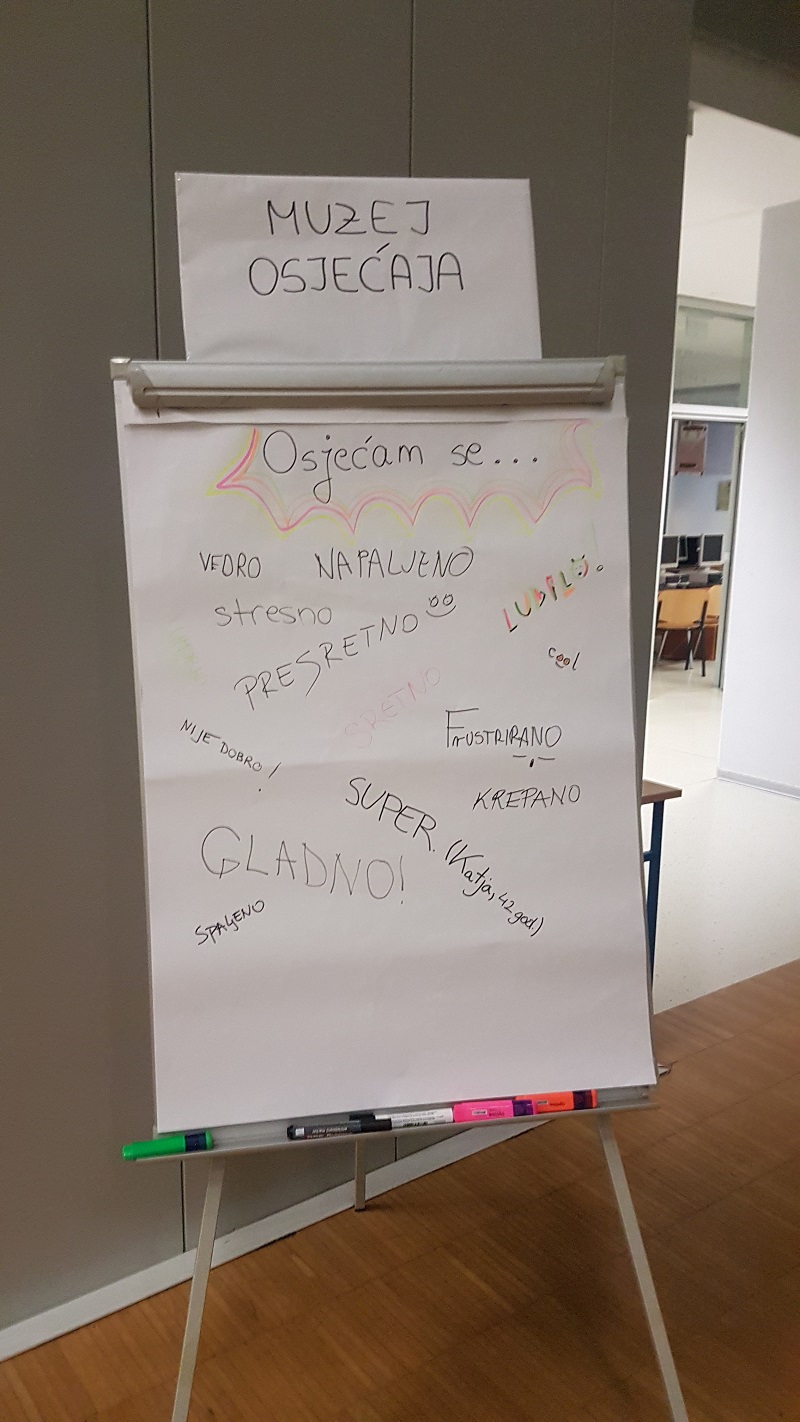 MUZEJ
OSJEĆAJA
Osjećam se...
VEDRO
NAPALJENO
stresno
LUDILO!
PRESRETNO
cool
SRETNO
NIJE DOBRO!
FRUSTRIRANO
KREPANO
SUPER. (Katja, 42 god)
GLADNO!
SPALJENO